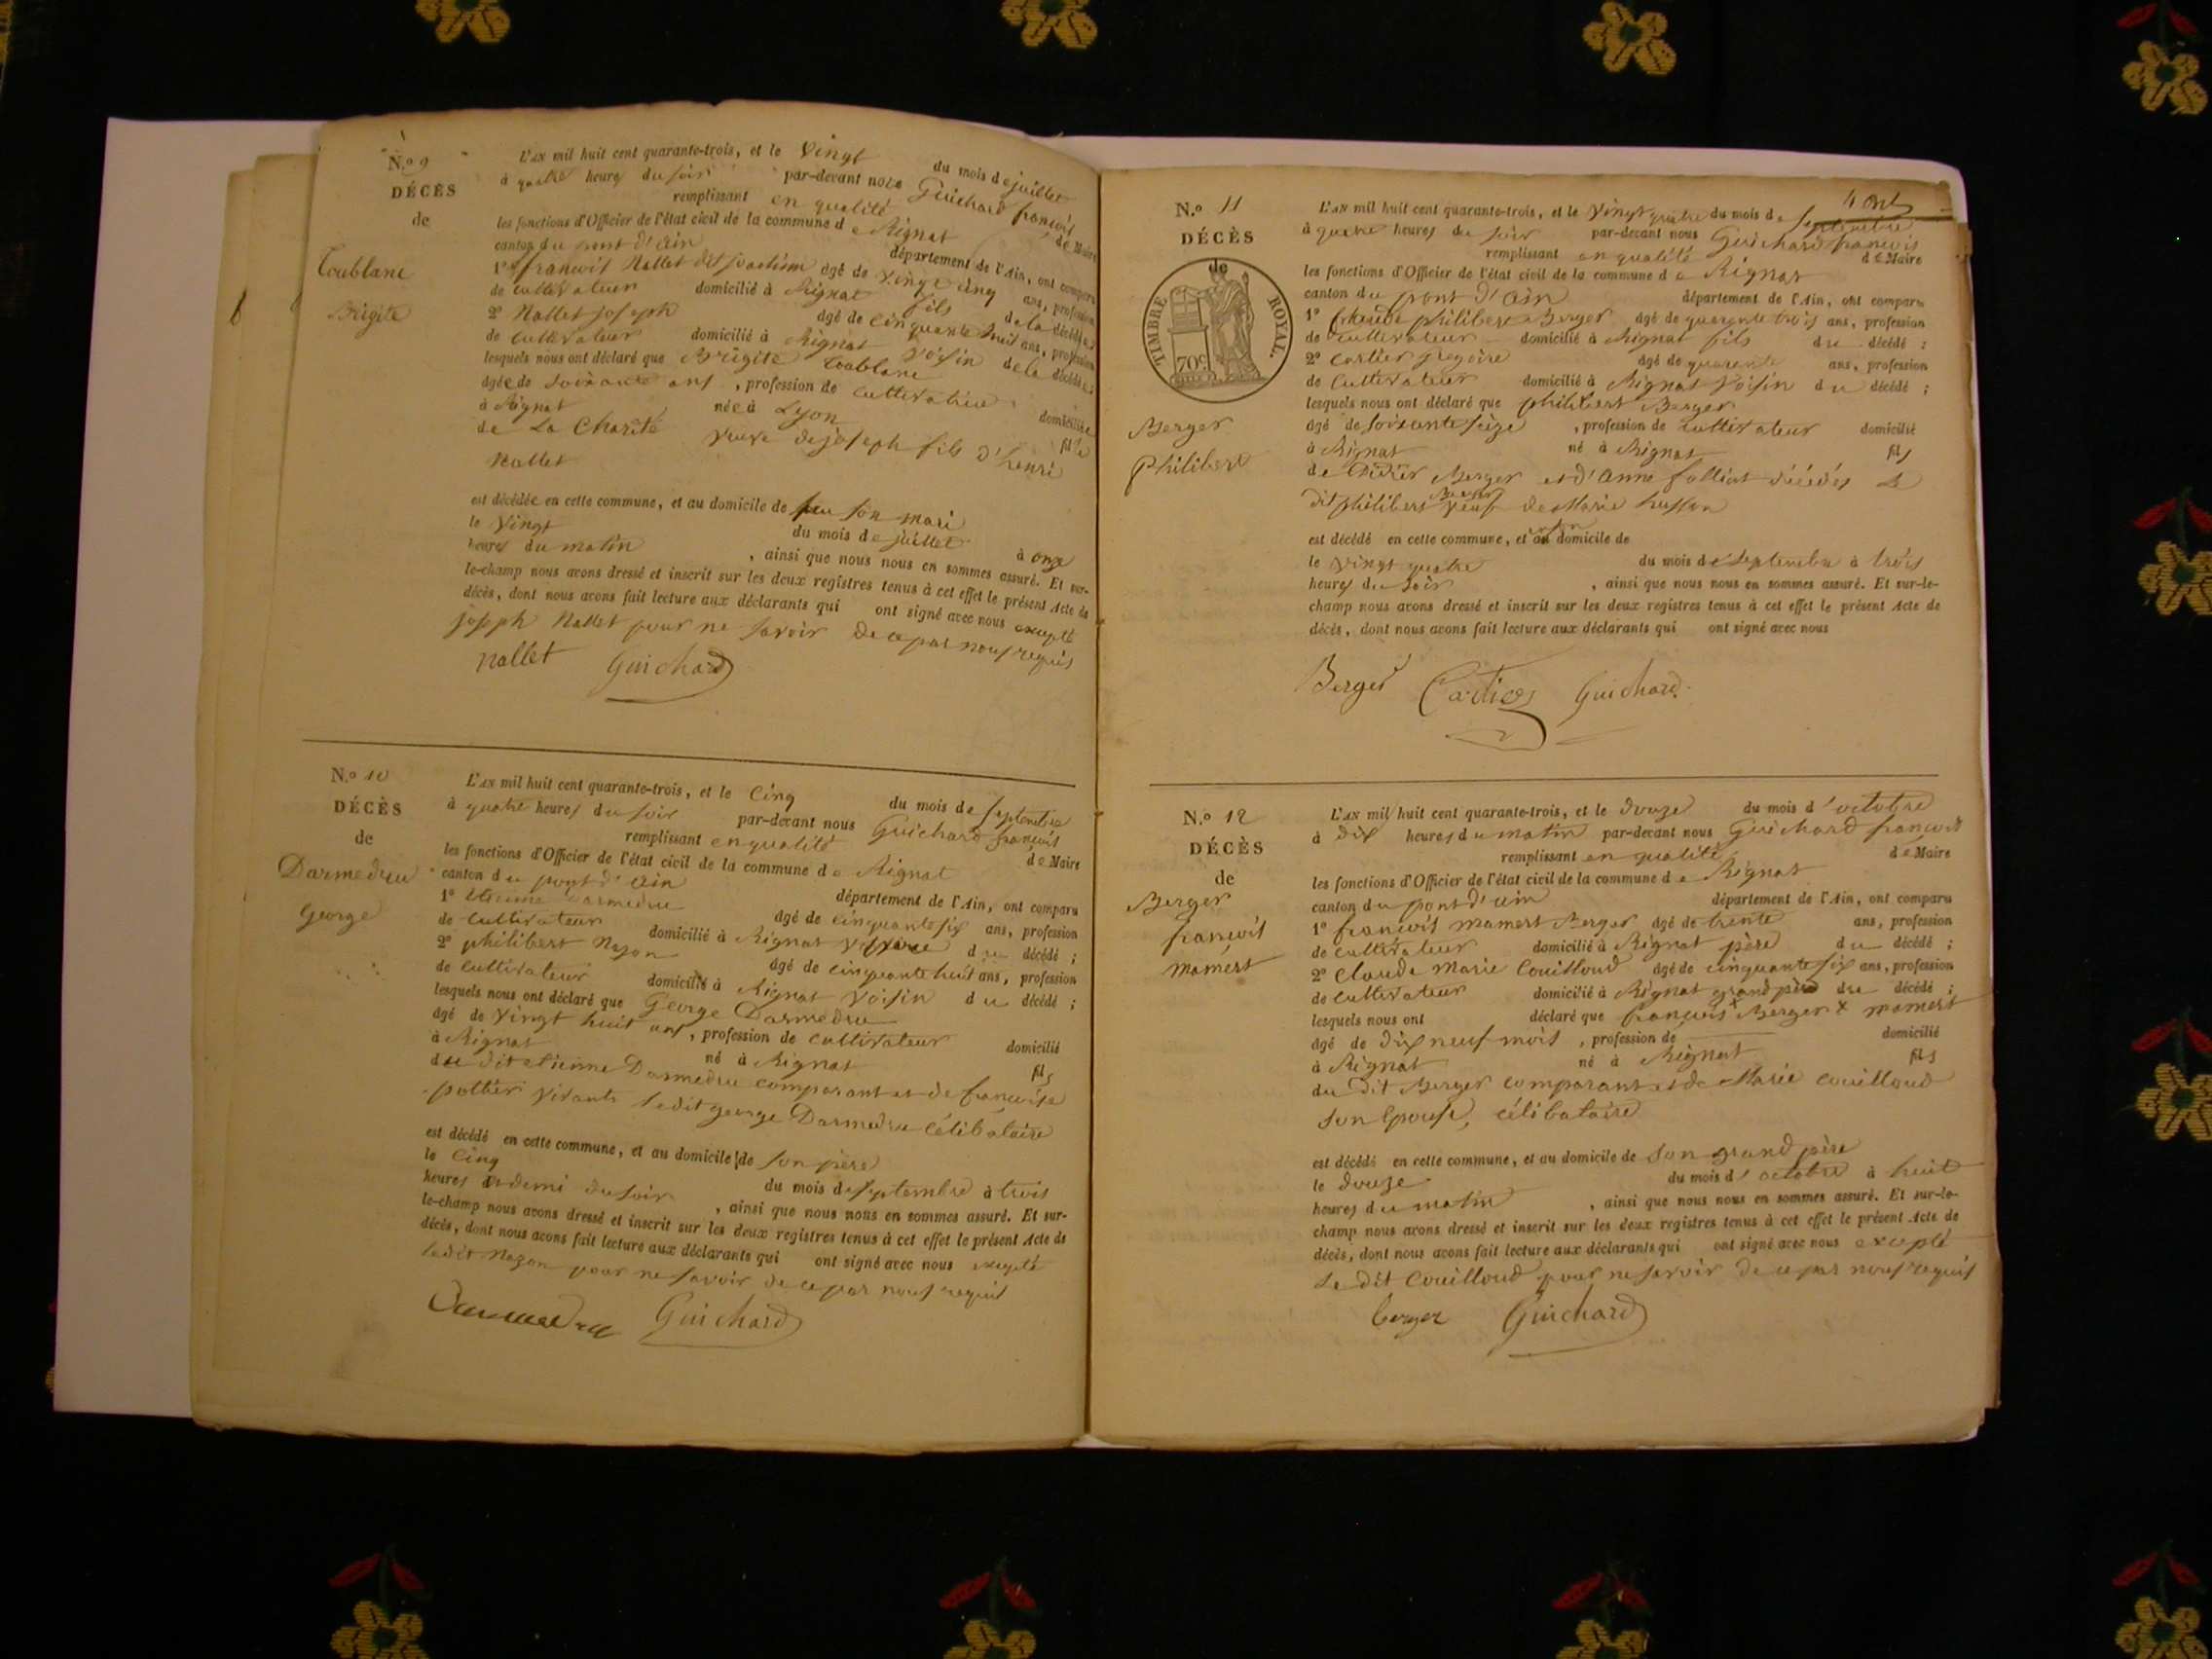 N.º 9
DÉCÈS
de
Toublanc
Brigite
L'AN mil huit cent quarante-trois, et le Vingt du mois de juillet
à quatre heures du soir par-devant nous Guichard françois
remplissant en qualité de Maire
les fonctions d'Officier de l'état civil de la commune de Rignat
canton du pont d'ain département de l'Ain, ont comparu
1º françois Nallet dit joachim âgé de Vingt cinq ans, profession
de cultivateur domicilié à Rignat fils de la décédée
2º Nallet joseph âgé de cinquante huit ans, profession
de cultivateur domicilié à Rignat Voisin de la décédée
lesquels nous ont déclaré que Brigite Toublanc
âgée de soixante ans, profession de cultivatrice domiciliée
à Rignat née à Lyon fille
de La Charité veuve de joseph fils d'henri
Nallet
est décédée en cette commune, et au domicile de feu son mari
le Vingt du mois de juillet à onze
heures du matin, ainsi que nous nous en sommes assuré. Et sur-
le-champ nous avons dressé et inscrit sur les deux registres tenus à cet effet le présent Acte de
décès, dont nous avons fait lecture aux déclarants qui ont signé avec nous excepté
joseph Nallet pour ne savoir de ce par nous requis
nallet Guichard
N.º 10
DÉCÈS
de
Darmedru
George
L'AN mil huit cent quarante-trois, et le Cinq du mois de septembre
à quatre heures du soir par-devant nous Guichard françois
remplissant en qualité de Maire
les fonctions d'Officier de l'état civil de la commune de Rignat
canton du pont d'ain département de l'Ain, ont comparu
1º Etienne Darmedru âgé de cinquante six ans, profession
de cultivateur domicilié à Rignat père du décédé;
2º philibert Nazon âgé de cinquante huit ans, profession
de cultivateur domicilié à Rignat Voisin du décédé;
lesquels nous ont déclaré que George Darmedru
âgé de vingt huit ans, profession de cultivateur domicilié
à Rignat né à Rignat fils
du dit etienne Darmedru comparant et de françoise
pottier vivants ledit george Darmedru célibataire
est décédé en cette commune, et au domicile de son père
le Cinq du mois de septembre à trois
heures et demi du soir, ainsi que nous nous en sommes assuré. Et sur-
le-champ nous avons dressé et inscrit sur les deux registres tenus à cet effet le présent Acte de
décès, dont nous avons fait lecture aux déclarants qui ont signé avec nous excepté
ledit Nazon pour ne savoir de ce par nous requis
Darmedru Guichard
N.º 11
DÉCÈS
de
TIMBRE ROYAL.
70c
Berger
Philibert
L'AN mil huit cent quarante-trois, et le Vingt quatre du mois de septembre
à quatre heures du soir par-devant nous Guichard françois
remplissant en qualité de Maire
les fonctions d'Officier de l'état civil de la commune de Rignat
canton du pont d'ain département de l'Ain, ont comparu
1º Claude philibert Berger âgé de quarante trois ans, profession
de cultivateur domicilié à Rignat fils du décédé;
2º Cartier gregoire âgé de quarante ans, profession
de Cultivateur domicilié à Rignat Voisin du décédé;
lesquels nous ont déclaré que philibert Berger
âgé de soixante seize, profession de cultivateur domicilié
à Rignat né à Rignat fils
de Didier Berger et d'anne folliat décédés le
dit philibert Berger veuf de Marie husson
est décédé en cette commune, et au domicile de
le vingt quatre du mois de Septembre à trois
heures du soir, ainsi que nous nous en sommes assuré. Et sur-le-
champ nous avons dressé et inscrit sur les deux registres tenus à cet effet le présent Acte de
décès, dont nous avons fait lecture aux déclarants qui ont signé avec nous
Berger Cartier Guichard
N.º 12
DÉCÈS
de
Berger
françois
mamert
L'AN mil huit cent quarante-trois, et le douze du mois d'octobre
à dix heures du matin par-devant nous Guichard françois
remplissant en qualité de Maire
les fonctions d'Officier de l'état civil de la commune de Rignat
canton du pont d'ain département de l'Ain, ont comparu
1º françois mamert Berger âgé de trente ans, profession
de cultivateur domicilié à Rignat père du décédé;
2º Claude Marie Couilloud âgé de cinquante six ans, profession
de cultivateur domicilié à Rignat grand père du décédé;
lesquels nous ont déclaré que françois Berger x mamert
âgé de dix neuf mois, profession de domicilié
à Rignat né à Rignat fils
du dit Berger comparant et de Marie Couilloud
son Epouse, célibataire
est décédé en cette commune, et au domicile de son grand père
le douze du mois d'octobre à huit
heures du matin, ainsi que nous nous en sommes assuré. Et sur-le-
champ nous avons dressé et inscrit sur les deux registres tenus à cet effet le présent Acte de
décès, dont nous avons fait lecture aux déclarants qui ont signé avec nous excepté
Le dit Couilloud pour ne savoir de ce par nous requis
berger Guichard